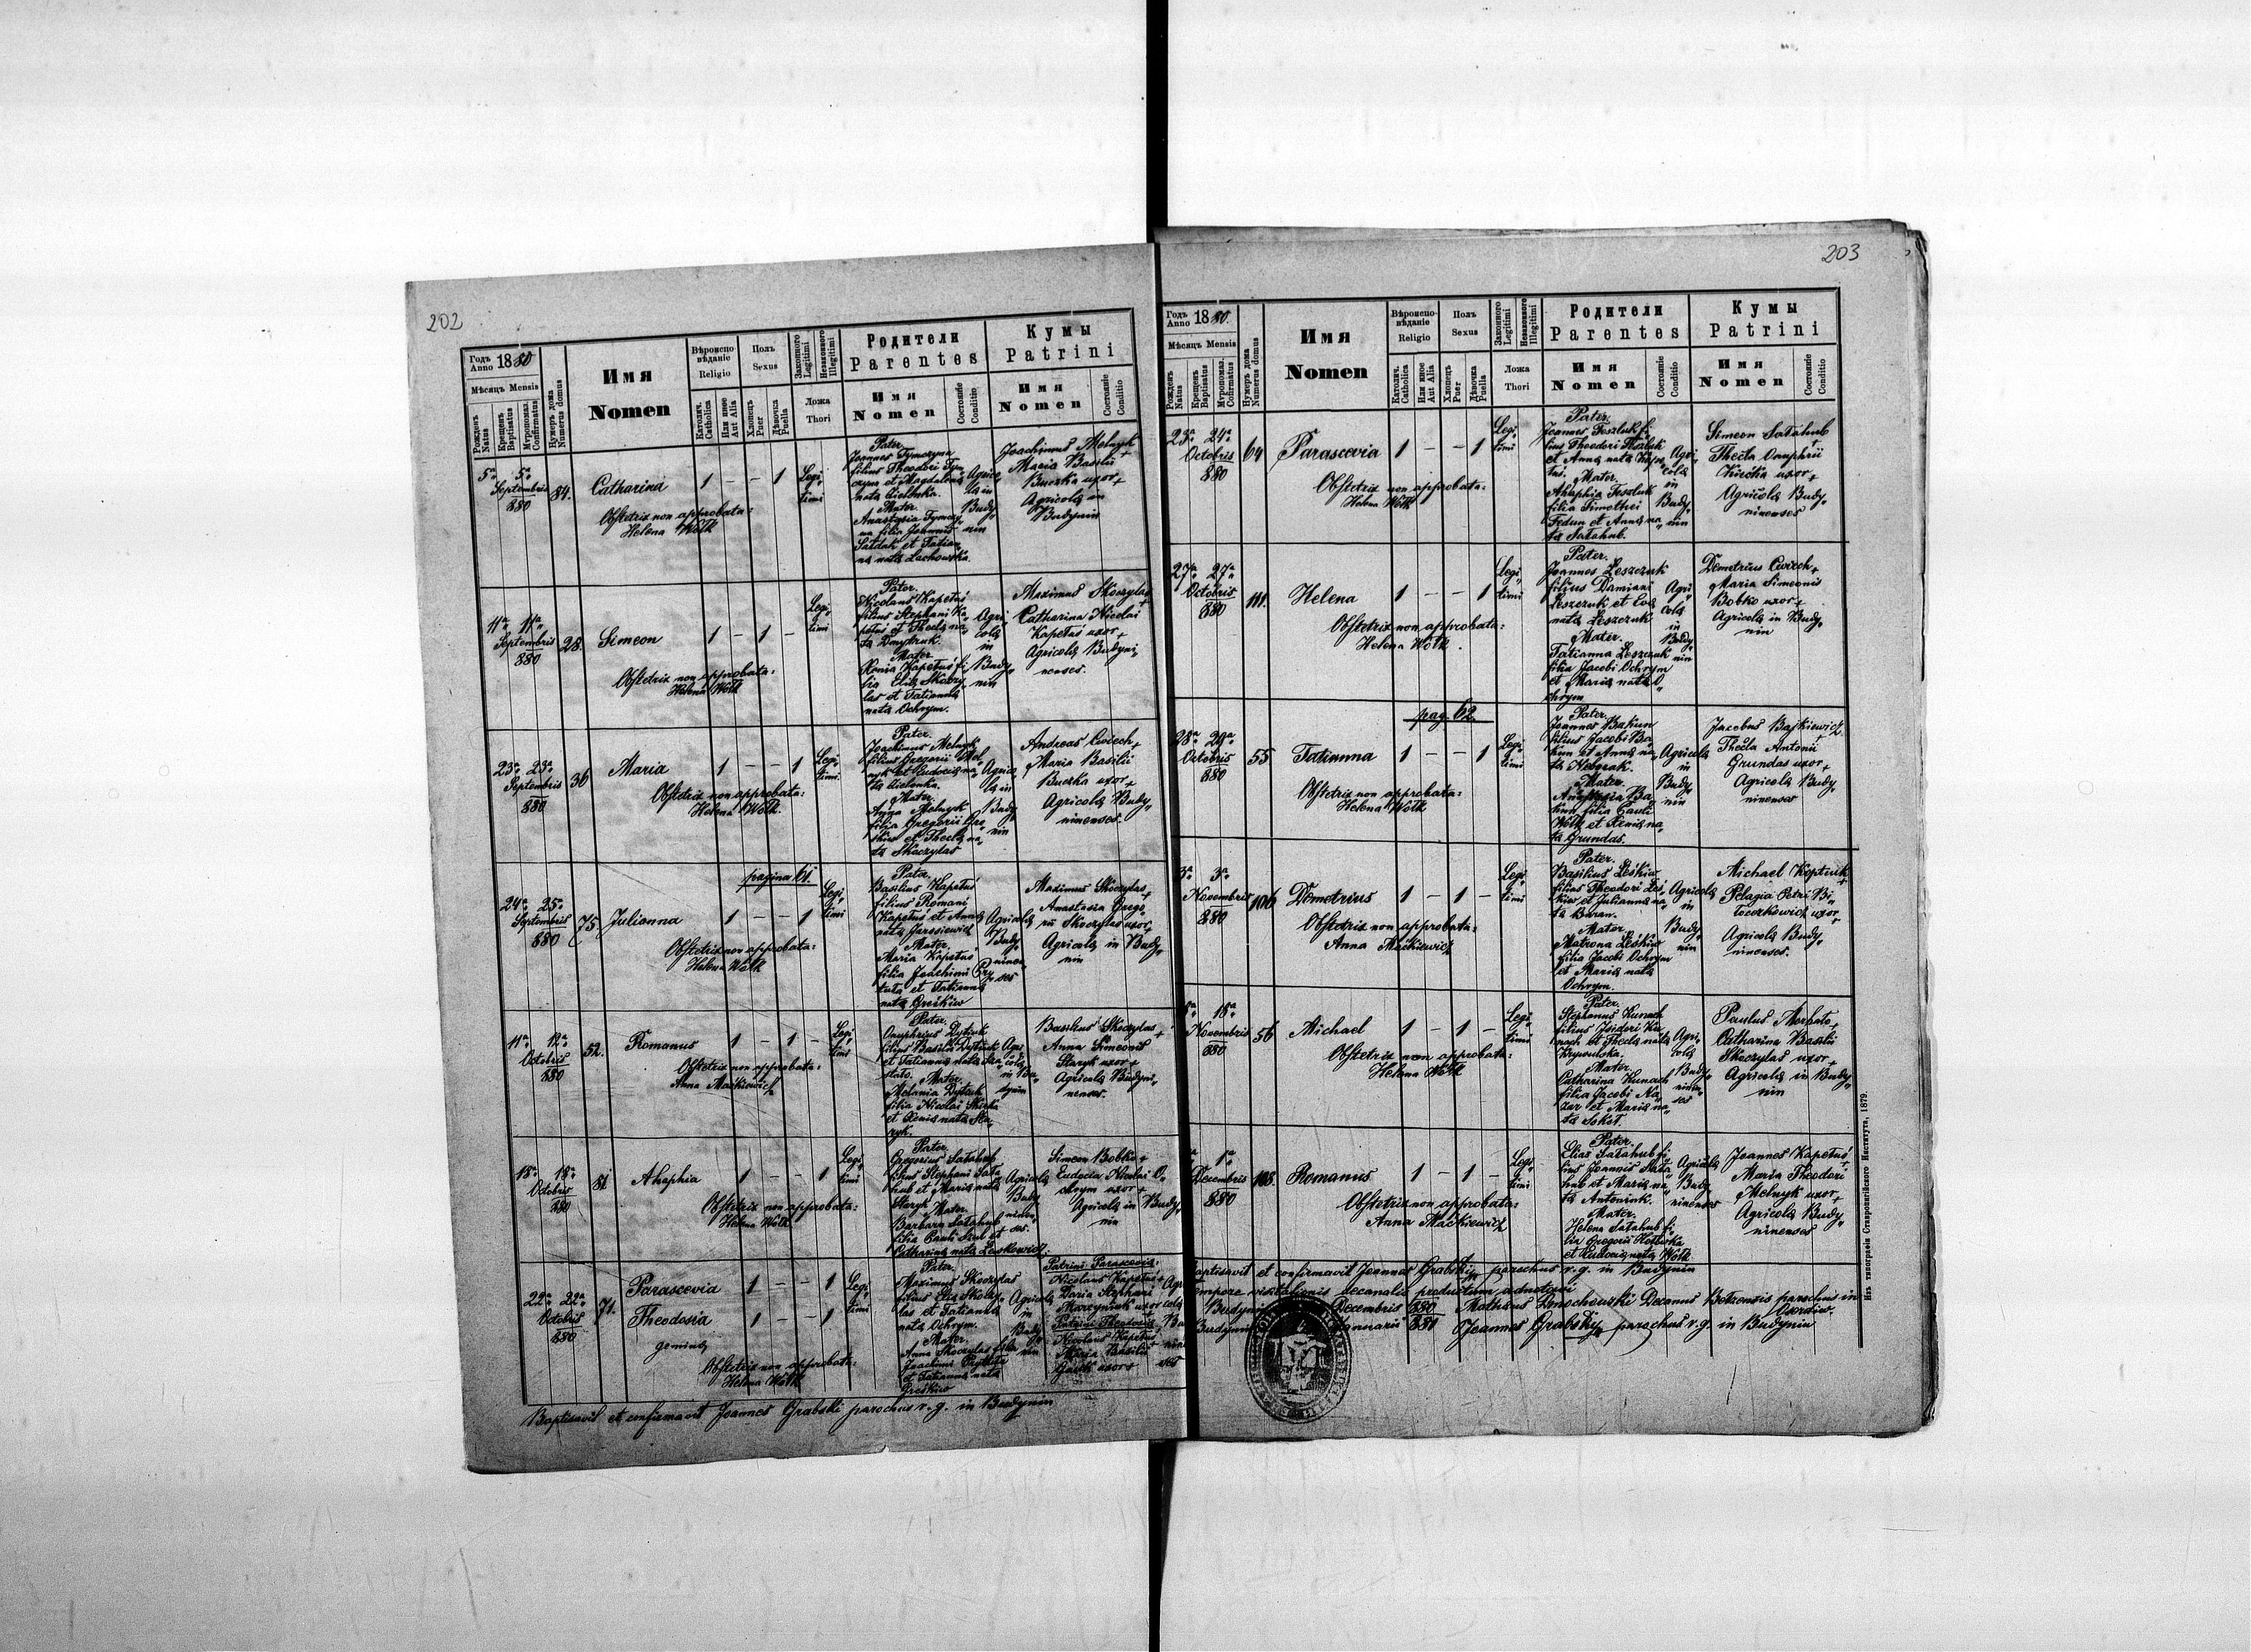 202
Годъ Anno 1880
Мѣсяцъ Mensis
Рожденъ Natus
Крещенъ Baptisatus
Мѵропомаз. Confirmatus
Нумеръ дома Numerus domus
Имя
Nomen
Вѣроисповѣданіе
Religio
Католич. Catholica
Или иное Aut Alia
Полъ
Sexus
Хлопецъ Puer
Дѣвочка Puella
Законного Legitimi
Незаконного Illegitimi
Ложа
Thori
Родители
Parentes
Имя
Nomen
Состояніе Conditio
Кумы
Patrini
Имя
Nomen
Состояніе Conditio
5a 5a
Septembris
880
84.
Catharina
1 – – 1
Legi„
timi
Obstetrix non approbata:
Helena Wołk
Pater.
Joannes Tymczyna
filius Theodori Tym„
czyna et Magdalena
nata Cielonka.
Mater.
Anastasia Tymczy„
na filia Joannis
et Tatian„
na nata Lachowska.
Agrico„
la in
Budy„
nin
Joachimus Melnyk
+
Maria Basilii
Buczka uxor +
Agricola in
Budynin
11a 11a
Septembris
880
28.
Simeon
1 – 1 –
Legi„
timi
Obstetrix non approbata:
Helena Wołk
Pater.
Nicolaus Kapetuś
filius Stephani Ka„
petuś et Thecla na„
ta Dmytruk.
Mater.
Xenia Kapetuś fi„
lia Eliæ Skoczy„
las et Tatianna
nata Ochrym.
Agri„
cola
in
Budy„
nin
Maximus Skoczylas
+
Catharina Nicolai
Kapetuś uxor +
Agricola Budyni„
nenses.
23a 23a
Septembris
880
36
Maria
1 – – 1
Legi„
timi.
Obstetrix non approbata:
Helena Wołk.
Pater.
Joachimus Melnyk
filius Gregorii Mel„
nyk et Eudocia na„
ta Cielonka.
Mater.
Anna Melnyk
filia Gregorii Gre„
śkiw et Thecla na„
ta Skoczylas
Agrico„
la in
Budy„
nin
Andreas Cwiech +
Maria Basilii
Buczka uxor +
Agricola Budy„
ninenses.
pagina 61.
24a 25a
Septembris
880
75.
Julianna
1 – – 1
Legi„
timi
Obstetrix non approbata:
Helena Wołk
Pater.
Basilius Kapetuś
filius Romani
Kapetuś et Anna
nata Jarosiewicz
Mater.
Maria Kapetuś
filia Joachimi Pry„
tuła et Tatianna
nata Greśkiw
Agricola
Budy„
ninen„
ses
Maximus Skoczylas +
Anastasia Grego„
rii Skoczylas uxor +
Agricola in Budy„
nin
11a 12a
Octobris
880
52.
Romanus
1 – 1 –
Legi„
timi
Obstetrix non approbata:
Anna Mackiewicz
Pater.
Onuphrius Dytiuk
filius Basilii Dytiuk
et Tatianna nata
Mater.
Melania Dytiuk
filia Nicolai
et Xenia nata Sta„
ryk.
Agri„
cola
in Bu„
dynin
Basilius Skoczylas +
Anna Simeonis
Staryk uxor +
Agricola Budyni„
nenses.
18a 18a
Octobris
880
81
Ahaphia
1 – – 1
Legi„
timi
Obstetrix non approbata:
Helena Wołk
Pater.
Gregorius Sałahub
filius Stephani Sała„
hub et Maria nata
Staryk
Mater.
Barbara Sałahub
filia Pauli et
Catharina nata Lewkowicz.
Agricola
Budy„
ninen„
ses.
Simeon Bobko +
Eudocia Nicolai O„
chrym uxor +
Agricola in Budy„
nin
22a 22a
Octobris
880
71.
Parascevia
1 – – 1
Theodosia
1 – – 1
geminæ
Legi„
timi
Obstetrix non approbata:
Helena Wołk
Pater.
Maximus Skoczylas
filius Eliæ Skoczy„
las et Tatianna
nata Ochrym.
Mater.
Anna Skoczylas filia
Joachimi Prytuła
et Tatianna nata
Greśkiw
Agricola
in
Budy„
nin
Patrini Parasceviæ:
Nicolaus Kapetuś +
Daria Stephani
Marcyniuk uxor
Patrini Theodosiæ
Nicolaus Kapetuś
+
Maria Basilii
uxor +
Baptisavit et confirmavit Joannes Grabski parochus r.g. in Budynin
203
Годъ Anno 1880.
Мѣсяцъ Mensis
Рожденъ Natus
Крещенъ Baptisatus
Мѵропомаз. Confirmatus
Нумеръ дома Numerus domus
Имя
Nomen
Вѣроисповѣданіе
Religio
Католич. Catholica
Или иное Aut Alia
Полъ
Sexus
Хлопецъ Puer
Дѣвочка Puella
Законного Legitimi
Незаконного Illegitimi
Ложа
Thori
Родители
Parentes
Имя
Nomen
Состояніе Conditio
Кумы
Patrini
Имя
Nomen
Состояніе Conditio
23a 24a
Octobris
880
64
Parascevia
1 – – 1
Legi„
timi
Obstetrix non approbata:
Helena Wołk
Pater.
Joannes Feszluk fi„
lius Theodori Feszluk
et Anna nata Kape„
tuś.
Mater.
Ahaphia Feszluk
filia Timothei
Fedun et Anna na„
ta Sałahub.
Agri„
cola
in
Budy„
nin
Simeon Sałahub
+
Thecla Onuphrii
Kiećka uxor +
Agricola Budy„
ninenses
27a 27a
Octobris
880
111.
Helena
1 – – 1
Legi„
timi
Obstetrix non approbata:
Helena Wołk.
Pater.
Joannes Leszczuk
filius Damiani
Leszczuk et Eva
nata Leszczuk
Mater.
Tatianna Leszczuk
filia Jacobi Ochrym
et Maria nata O„
chrym
Agri„
cola
in
Budy„
nin
Demetrius Cwiech +
Maria Simeonis
Bobko uxor +
Agricola in Budy„
nin
pag. 62
28a 29a
Octobris
880
55
Tatianna
1 – – 1
Legi„
timi
Obstetrix non approbata:
Helena Wołk
Pater.
Joannes Bakun
filius Jacobi Ba„
kun et Anna na„
ta Neborak.
Mater.
Anastasia Ba„
kun filia Pauli
Wołk et Xenia na„
ta Grundas.
Agricola
in
Budy„
nin
Jacobus Baśkiewicz
+
Thecla Antonii
Grundas uxor +
Agricola Budy„
ninenses
3a 3a
Novembris
880
106
Demetrius
1 – 1 –
Legi„
timi
Obstetrix non approbata:
Anna Mackiewicz
Pater.
Basilius Leśkiw
filius Theodori Leś„
kiw et Julianna na„
ta Baran.
Mater.
Matrona Leśkiw
filia Jacobi Ochrym
et Maria nata
Ochrym.
Agricola
in
Budy„
nin
Michael Koptiuk +
Pelagia Petri Bi„
łoczkowicz uxor +
Agricola Budy„
ninenses.
18a
Novembris
880
56
Michael
1 – 1 –
Legi„
timi
Obstetrix non approbata:
Helena Wołk
Pater.
Stephanus Kunach
filius Isidori Ku„
nach et Thecla nata
Krywulska.
Mater.
Catharina Kunach
filia Jacobi Na„
zar et Maria na„
ta Sokot.
Agri„
cola
Budy„
ninen„
ses
Paulus Merbato +
Catharina Basilii
Skoczylas uxor +
Agricola in Budy„
nin
1a
Decembris
880
108.
Romanus
1 – 1 –
Legi„
timi
Obstetrix non approbata:
Anna Mackiewicz
Pater.
Elias Sałahub fi„
lius Joannis Sała„
hub et Maria na„
ta Antoniuk.
Mater.
Helena Sałahub fi„
lia Gregorii
et Eudocia nata Wołk
Agricola
Budy„
ninenses
Joannes Kapetuś
+
Maria Theodori
Melnyk uxor +
Agricola Budy„
ninenses
Baptisavit et confirmavit Joannes Grabski parochus r.g. in Budynin
tempore visitationis decanalis productum adnotavi
Decembris 880 Decanus Bełzensis parochus in
Januarii 881 Joannes Grabski parochus r.g. in Budynin
Изъ типографіи Ставропигійского Института, 1879.